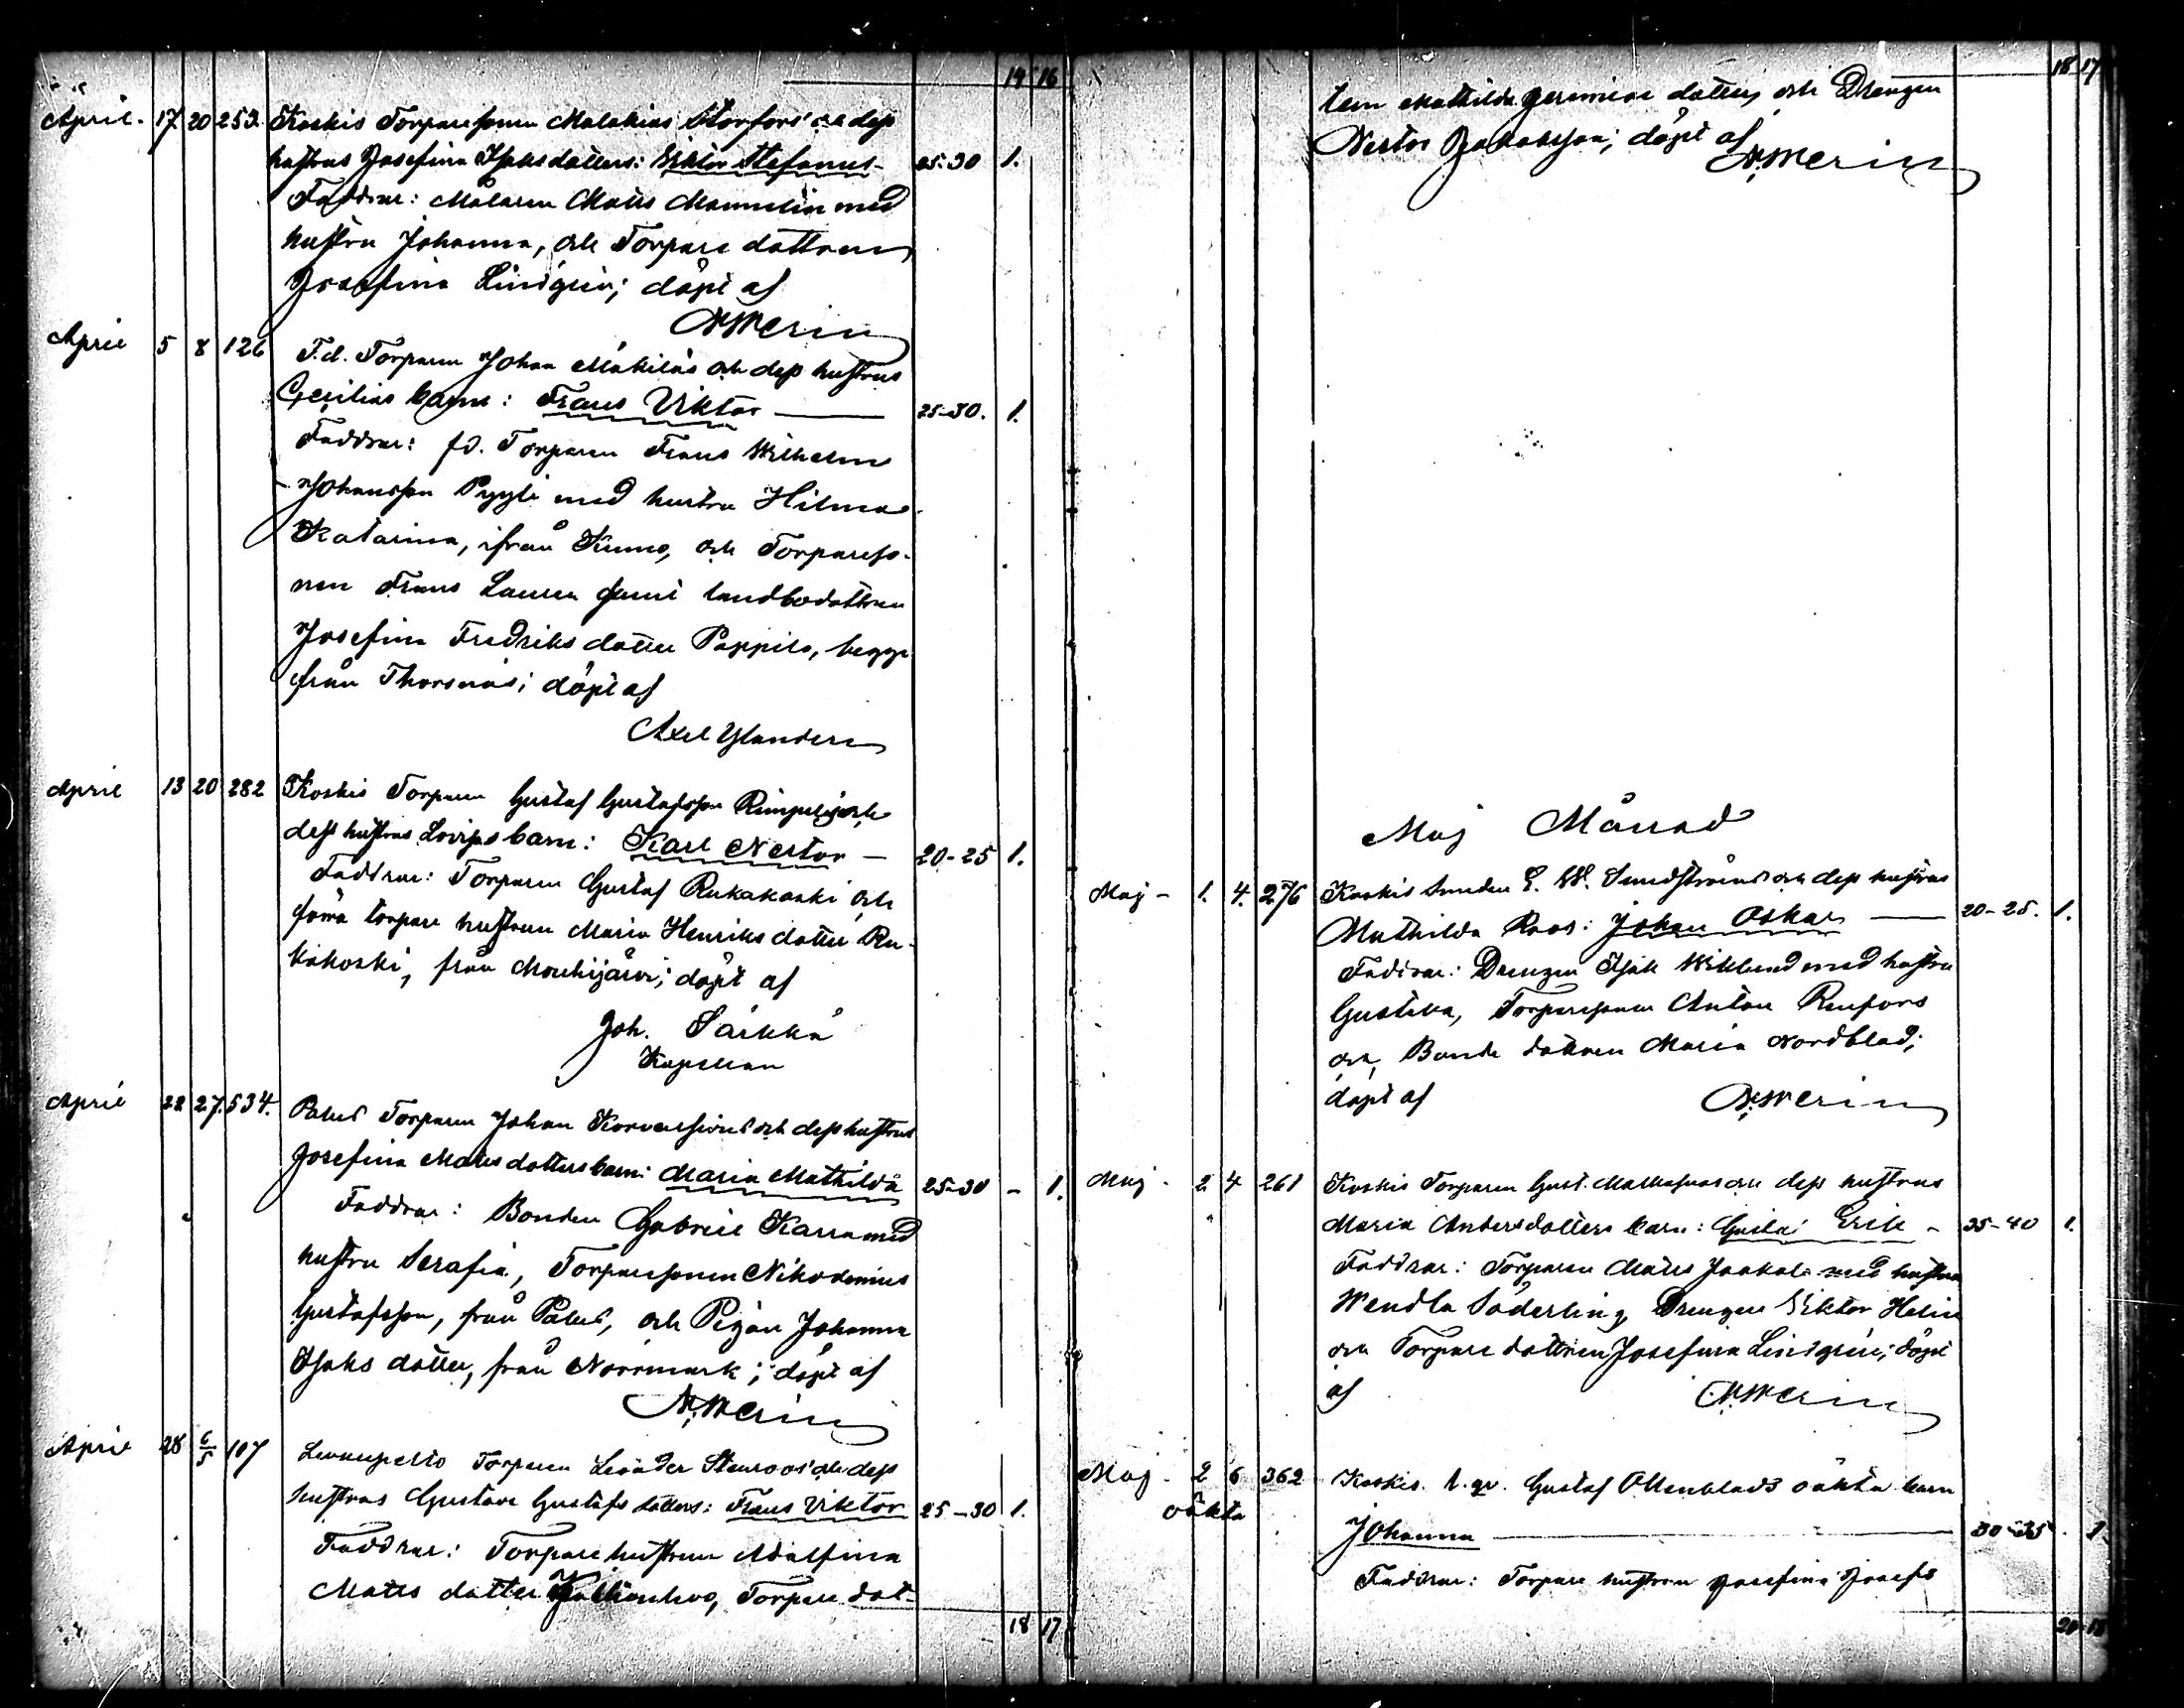 14 16
April. 17. 20 253. Koskis Torparesonen Malakias Storfors' och dess
hustrus Josefina Isaksdotters: Viktor Stefanus 25-30 1.
Faddrar: Målaren Matts Mannelin med
hustru Johanna, och Torpare dottren
Josefina Lindgren; döpt af
Merin
April 5 8 126 F.d. Torparen Johan Mäkiläs och dess hustrus
Cecilias barn: Frans Viktor 25-30. 1.
Faddrar: fd. Torparen Frans Wilhelm
Johansson Pyyli med hustru Hilma
Katarina, ifrån Kumo, och Torpareso-
nen Frans Lauren samt landbodottren
Josefina Fredriksdotter Pappila, begge
från Thorsnäs; döpt af
Axel Ylander
April 13 20 282 Koskis Torparen Gustaf Gustafsson och
dess hustrus Lovisas barn: Karl Nestor — 20-25 1.
Faddrar: Torparen Gustaf Rukakoski och
förra torpare hustrun Maria Henriksdotter Ru-
kakoski, från Mouhijärvi; döpt af
Joh. Särkkä
Kapellan
April 22 27. 534. Palus Torparen Johan och dess hustrus
Josefina Mattsdotters barn: Maria Mathilda 25-30 - 1.
Faddrar: Bonden Gabriel Karra med
hustru Serafia, Torparesonen Nikodemus
Gustafsson, från Palus, och Pigan Johanna
Isaks dotter, från Norrmark; döpt af
N. Merin
April 28 6/5 107 Levanpelto Torparen Leander Stenroos' och dess
hustrus Gustava Gustafs dotters: Frans Viktor 25-30 1.
Faddrar: Torpare hustrun Adolfina
Matts dotter Torpare dot-
18 17
18 17
tern Mathilda Jeremias dotter, och Drengen
Nestor Jakobsson; döpt af
N. Merin
Maj Månad
Maj - 1. 4. 276 Koskis Smeden E. W. Sundströms och dess hustrus
Mathilda Roos: Johan Oskar 20-25. 1.
Faddrar: Drengen Isak Wiklund med hustru
Gustava, Torparesonen Anton Renfors
och Bonde dottren Maria Nordblad;
döpt af N. Merin
Maj - 2 4 261 Koskis Torparen Gust. och dess hustrus
Maria Andersdotters barn: Erik - 35-40 1.
Faddrar: Torparen Matts Jaakola med hustru
Wendla Söderling, Drengen Viktor Helin
och Torpare dottren Josefina Lindgren; döpt
af N. Merin
Maj - 2 6 362 Koskis Gustaf Ollonblads oäkta barn
oäkta
Johanna 30-35 1
Faddrar: Torpare hustrun Josefina Josefs